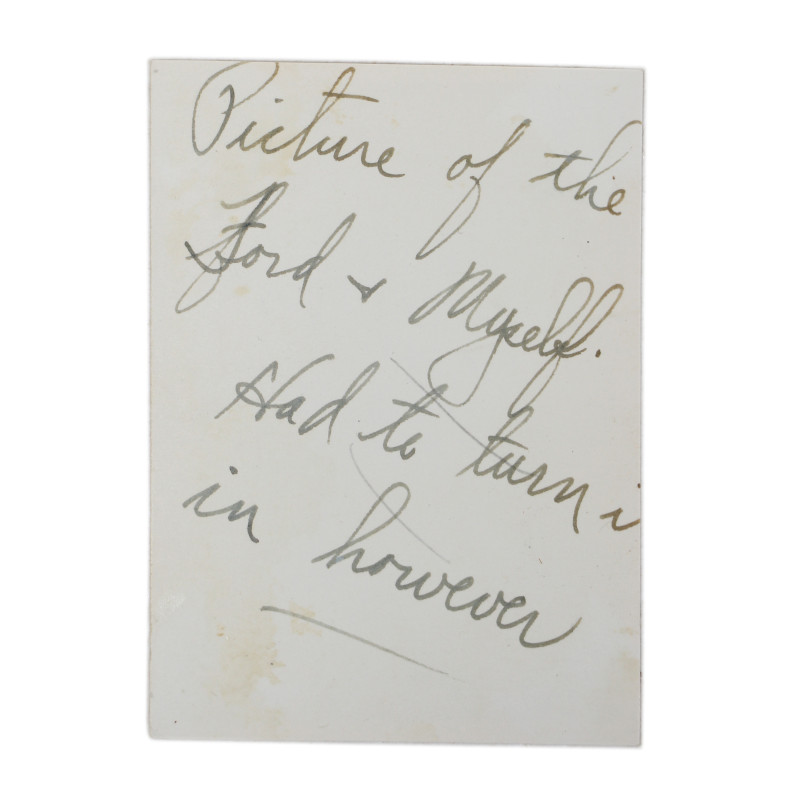 Picture of the
Ford & Myself.
Had to turn i
in however